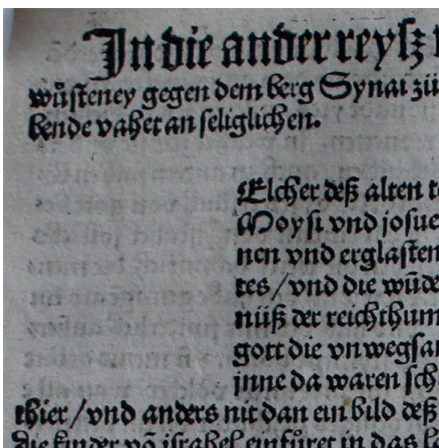 In die ander reyß
wůſteney gegen dem berg Synai zů
bende vahet an ſeliglichen.
Elcher deß alten t
Moyſi vnd joſue
nen vnd erglaſten
tes / vnd die wůde
nüß der reichthum
gott die vnwegſa
jnne da waren ſch
thier / vnd anders nit dan ein bild deß
die kinder võ iſrahel einfüret in das